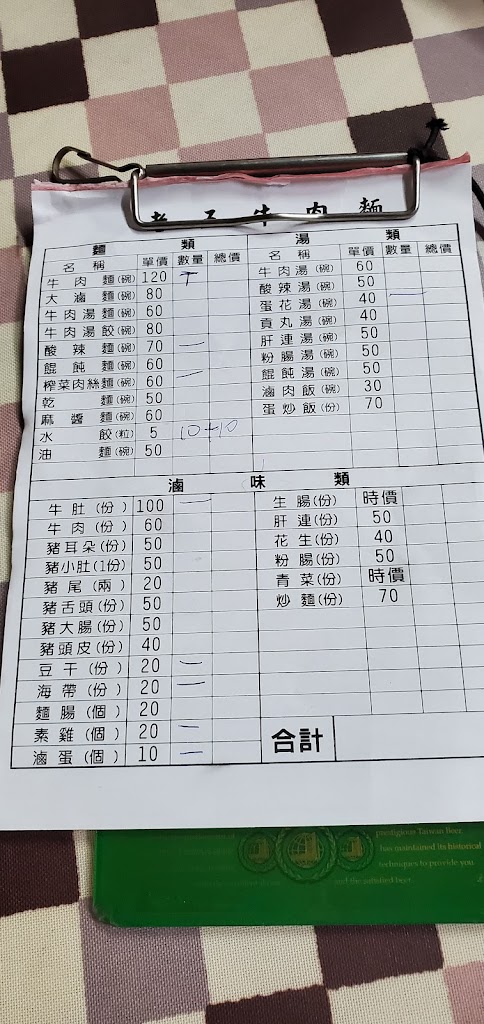 老 牛 肉 麵
麵 類
名 稱 單價 數量 總價
牛 肉 麵(碗) 120 T
大 滷 麵(碗) 80
牛肉湯麵(碗) 60
牛肉湯餃(碗) 80
酸 辣 麵(碗) 70 一
餛 飩 麵(碗) 60
榨菜肉絲麵(碗) 60 一
乾 麵(碗) 50
麻 醬 麵(碗) 60
水 餃(粒) 5 10+10
油 麵(碗) 50
湯 類
名 稱 單價 數量 總價
牛肉湯(碗) 60
酸辣湯(碗) 50
蛋花湯(碗) 40 一
貢丸湯(碗) 40
肝連湯(碗) 50
粉腸湯(碗) 50
餛飩湯(碗) 50
滷肉飯(碗) 30
蛋炒飯(份) 70
滷 味 類
牛肚(份) 100 一
牛肉(份) 60
豬耳朵(份) 50
豬小肚(1份) 50
豬尾(兩) 20
豬舌頭(份) 50
豬大腸(份) 50
豬頭皮(份) 40
豆干(份) 20 一
海帶(份) 20 一
麵腸(個) 20
素雞(個) 20 一
滷蛋(個) 10 一
生腸(份) 時價
肝連(份) 50
花生(份) 40
粉腸(份) 50
青菜(份) 時價
炒麵(份) 70
合計
prestigious Taiwan Beer
has maintained its historical
techniques to provide you
and the satisfied beer